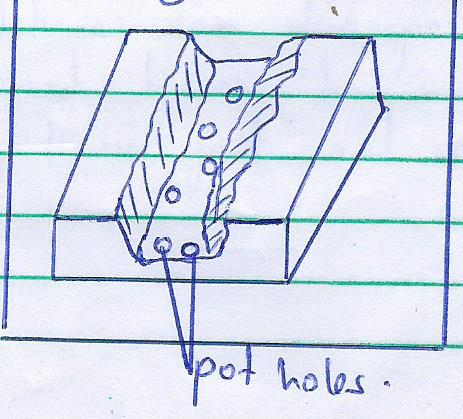 pot holes.